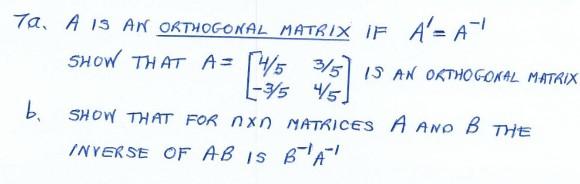 7a. A IS AN ORTHOGONAL MATRIX IF A' = A⁻¹
SHOW THAT A = [4/5 3/5] IS AN ORTHOGONAL MATRIX
[-3/5 4/5]
b. SHOW THAT FOR nxn MATRICES A AND B THE
INVERSE OF AB IS B⁻¹A⁻¹